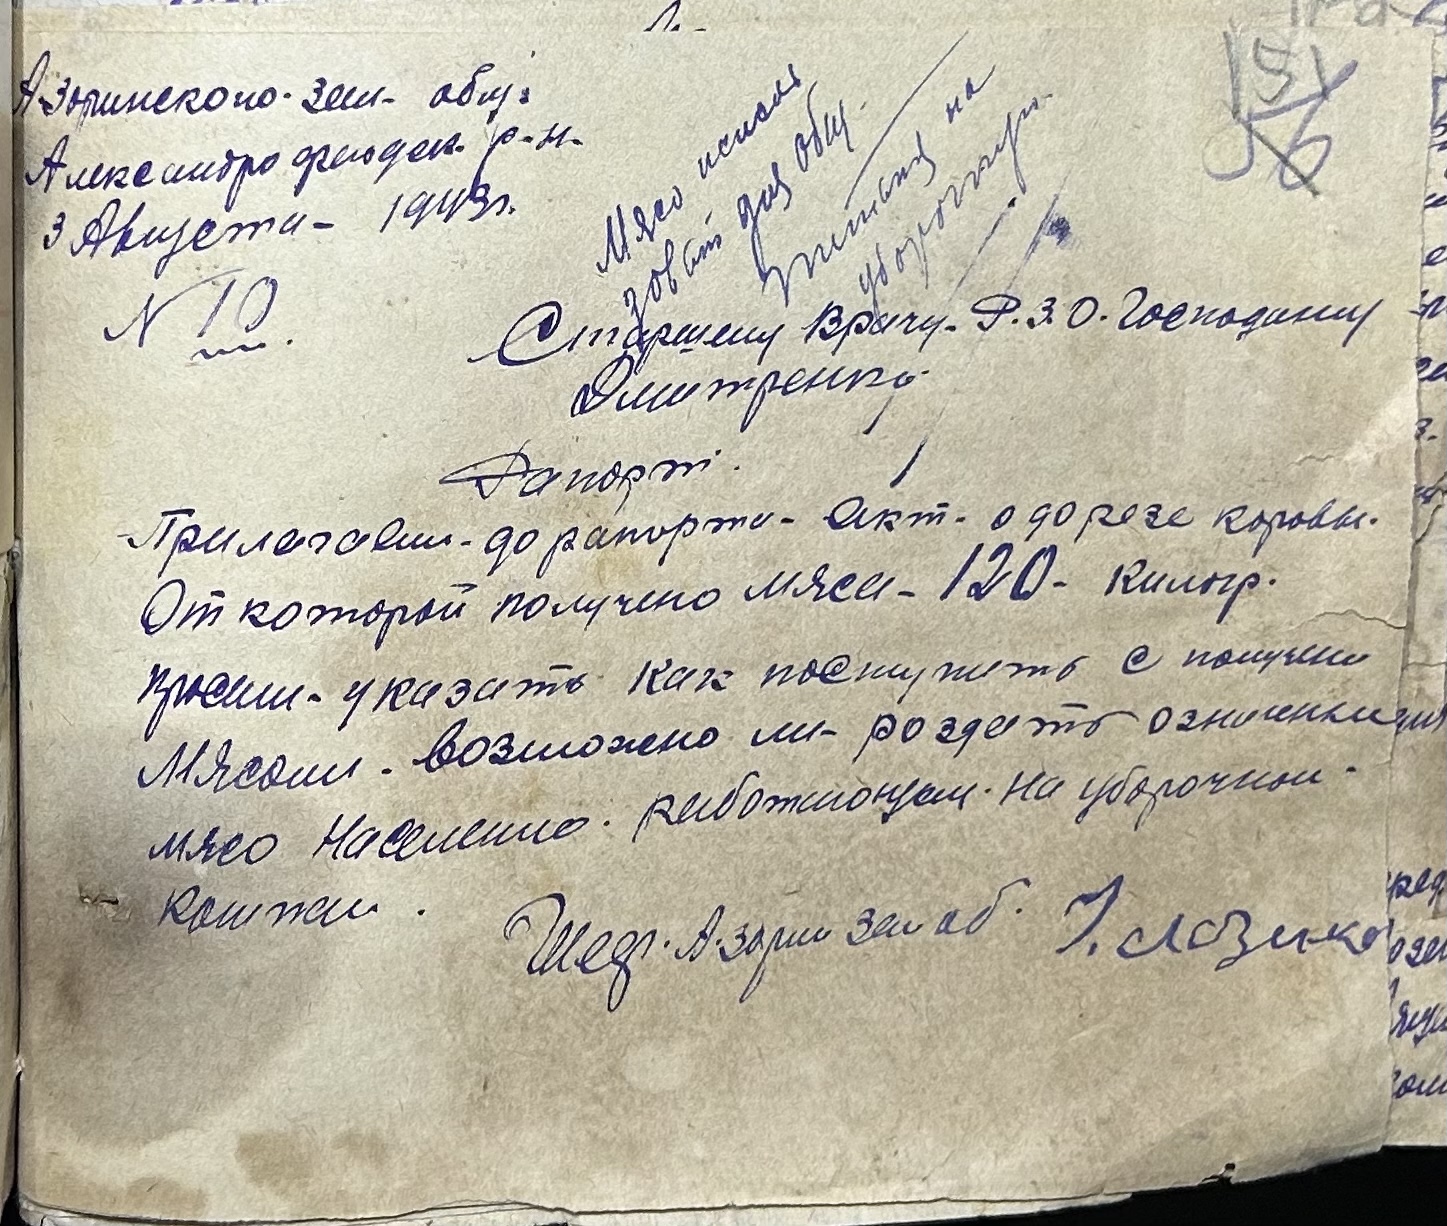 1.-
А-Зоринского. зем- общ:
Александрофендск. р-н.
3 Августа- 1943г.
N 10
Мясо исполь
зовать для общ.
питания на
уборочную.
151
56
Старшему Врачу. Р.З.О. Господину
Дмитренко
Рапорт.
Прилагаем- до рапорта- Акт- о дорезе коровы.
От которой получено мяса- 120- килогр.
просим- указать как поступить с получени
Мясом. возможено ли- роздать означеный
мясо Населению. работающем. на уборочной.
компан.
А-Зорин Зем об.